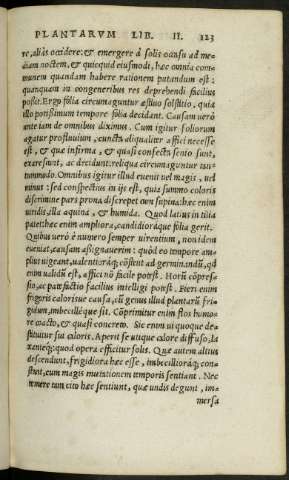 PLANTARVM LIB. II. 123
re, aliàs occidere: & emergere à solis occasu ad me-
diam noctem, & quicquid eiusmodi, hæc omnia com-
munem quandam habere rationem putandum est:
quanquam in congeneribus res deprehendi facilius
possit. Ergo folia circumaguntur æstiuo solstitio, quia
illo potissimum tempore folia decidant. Causam uerò
ante iam de omnibus diximus. Cum igitur foliorum
agatur profluuium, cuncta aliqualiter affici necesse
est, & quæ infirma, & quasi confecta senio sunt,
exarescunt, ac decidunt: reliqua circumaguntur tan-
tummodo. Omnibus igitur illud euenit uel magis, uel
minus: sed conspectius in ijs est, quia summo coloris
discrimine pars prona discrepet cum supina: hæc enim
uiridis, illa aquina, & humida. Quod latius in tilia
patet: hæc enim ampliora, candidioráque folia gerit.
Quibus uerò è numero semper uirentium, non idem
eueniat, causam assignauerim: quòd eo tempore am-
plius uigeant, ualentioráq; cōsistent ad germinandū, qd
enim ualidū est, affici nō facile potest. Horū cōpres-
sio, ac patefactio facilius intelligi potest. Fieri enim
frigoris calorisue causa, cū genus illud plantarū fri-
gidum, imbecilléque sit. Cōprimitur enim flos humo-
re coacto, & quasi concreto. Sic enim ui quoque de-
stituitur sui caloris. Aperit se utique calore diffuso, la-
xantéq;: quod opera efficitur solis. Quæ autem altius
descendunt, frigidiora hæc esse, imbecillioráq; con-
stat, cum magis mutationem temporis sentiant. Nec
temere tam cito hæc sentiunt, quæ undis degunt, im-
mersa